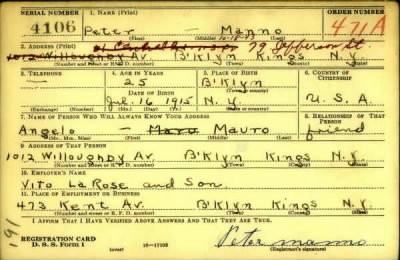 SERIAL NUMBER
1. NAME (Print)
ORDER NUMBER
4106
Peter — Manno
471A
(First) (Middle) (Last)
2. ADDRESS (Print)
79 Jefferson St.
1012 Willoughby Av. B'Klyn Kings N.Y.
(Number and street or R. F. D. number) (Town) (County) (State)
3. TELEPHONE
4. AGE IN YEARS
5. PLACE OF BIRTH
6. COUNTRY OF CITIZENSHIP
25
B'Klyn
DATE OF BIRTH
(Town or county)
Jul. 16 1915
N.Y.
U.S.A.
(Exchange) (Number)
(Mo.) (Day) (Yr.)
(State or country)
7. NAME OF PERSON WHO WILL ALWAYS KNOW YOUR ADDRESS
8. RELATIONSHIP OF THAT PERSON
Angelo — Mauro
friend
(Mr., Mrs., Miss) (First) (Middle) (Last)
9. ADDRESS OF THAT PERSON
1012 Willoughby Av. B'Klyn Kings N.Y.
(Number and street or R. F. D. number) (Town) (County) (State)
10. EMPLOYER'S NAME
Vito La Rose and Son
11. PLACE OF EMPLOYMENT OR BUSINESS
473 Kent Av. B'Klyn Kings N.Y.
(Number and street or R. F. D. number) (Town) (County) (State)
I AFFIRM THAT I HAVE VERIFIED ABOVE ANSWERS AND THAT THEY ARE TRUE.
191
REGISTRATION CARD
D. S. S. FORM 1
(over)
16—17105
Peter Manno
(Registrant's signature)